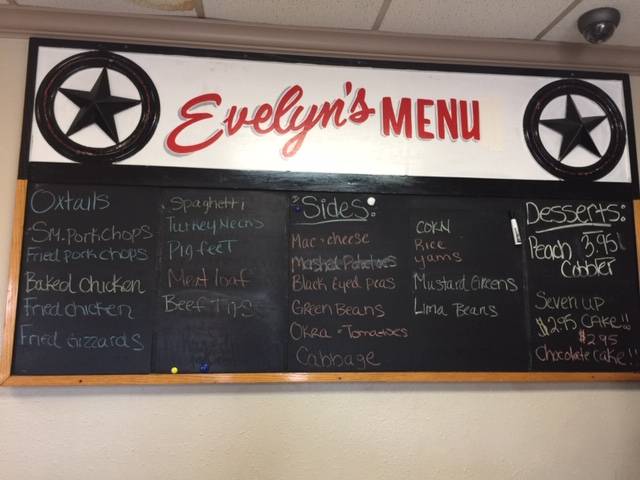 Evelyn's MENU
Oxtails
Sm. Pork chops
Fried pork chops
Baked chicken
Fried chicken
Fried Gizzards
Spaghetti
Turkey Necks
Pig feet
Meat loaf
Beef Tips
Sides:
Mac & cheese
Mashed Potatoes
Black Eyed peas
Green Beans
Okra & Tomatoes
Cabbage
CORN
Rice
yams
Mustard Greens
Lima Beans
Desserts:
Peach 3.95
Cobbler
Seven up
$2.95 CAKE!!
$2.95
Chocolate cake!!